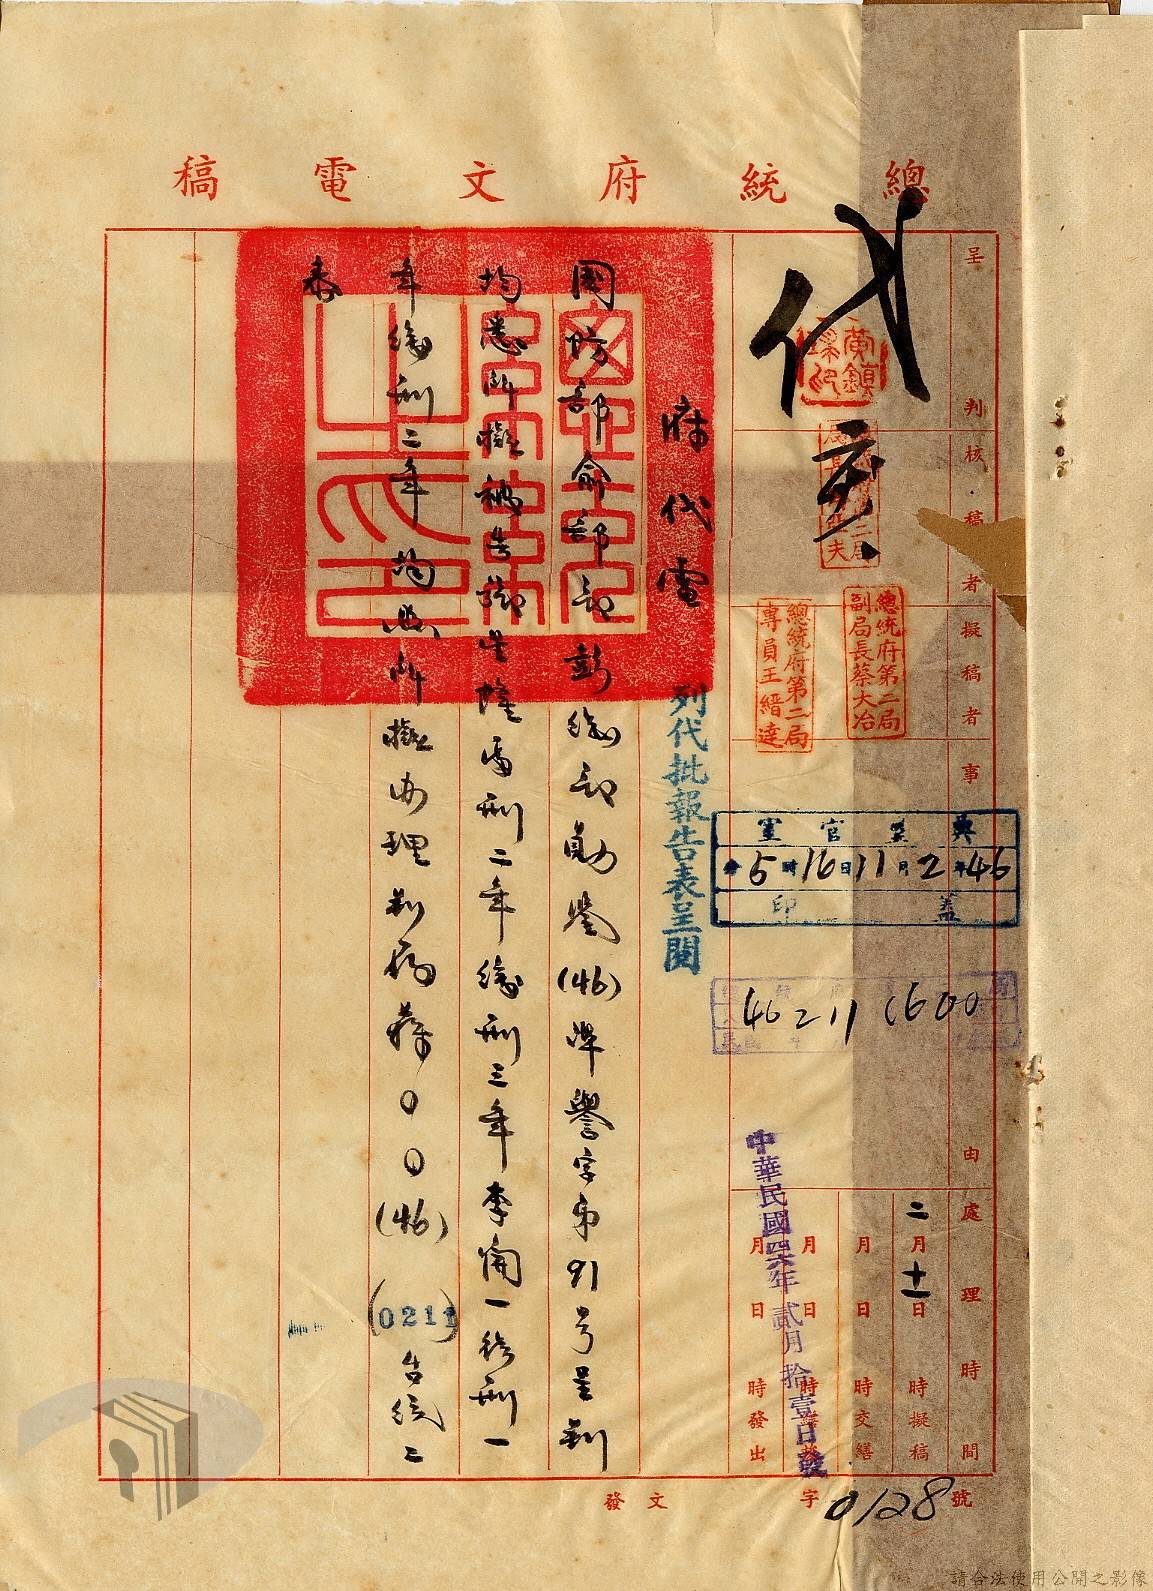 總統府文電稿
呈判
核稿者
擬稿者
事由
處理時間
代
黃鎮球印
總統府第二局副局長蔡大冶
總統府第二局專員王縉達
典璽官室
46年2月11日16時5分
蓋印
46 2 11 1600
二月十一日 時擬稿
月 日 時交繕
月 日 時
月 日 時發出
中華民國四六年貳月拾壹日發
府代電
列代批報告表呈閱
國防部俞部部彭總部勛鑒(46)準譽字第91号呈判
均悉所擬被告鄒
處刑二年緩刑三年李
一徒刑一
年緩刑二年均照所擬辦理
(46)
(0211)
台統二
發文 字 0128 號
請合法使用公開之影像